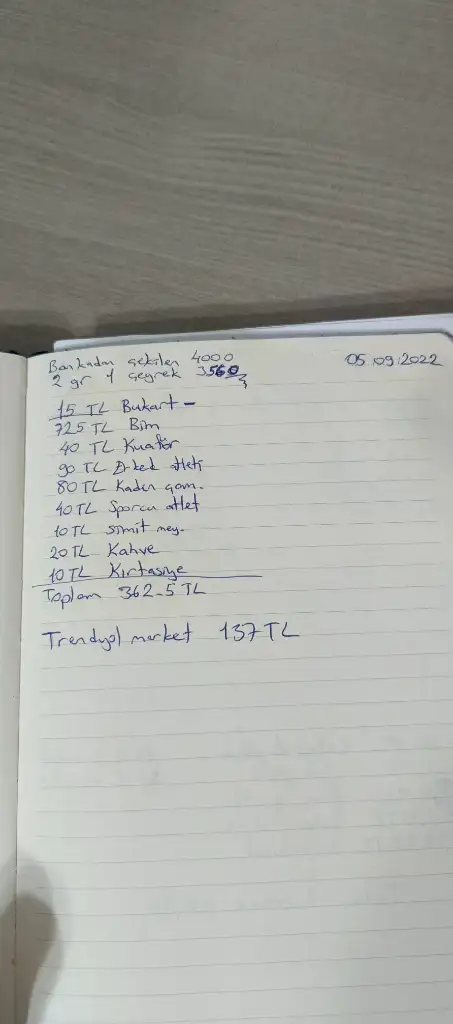 Bankadan çekilen 4000
05.09.2022
2 gr 1 çeyrek 3560
15 TL Bukart -
725 TL Bim
40 TL Kuaför
90 TL Erkek atleti
80 TL Kadın çam.
40 TL Sporcu atlet
10 TL Simit mey.
20 TL Kahve
10 TL Kırtasiye
Toplam 362.5 TL
Trendyol market 137 TL